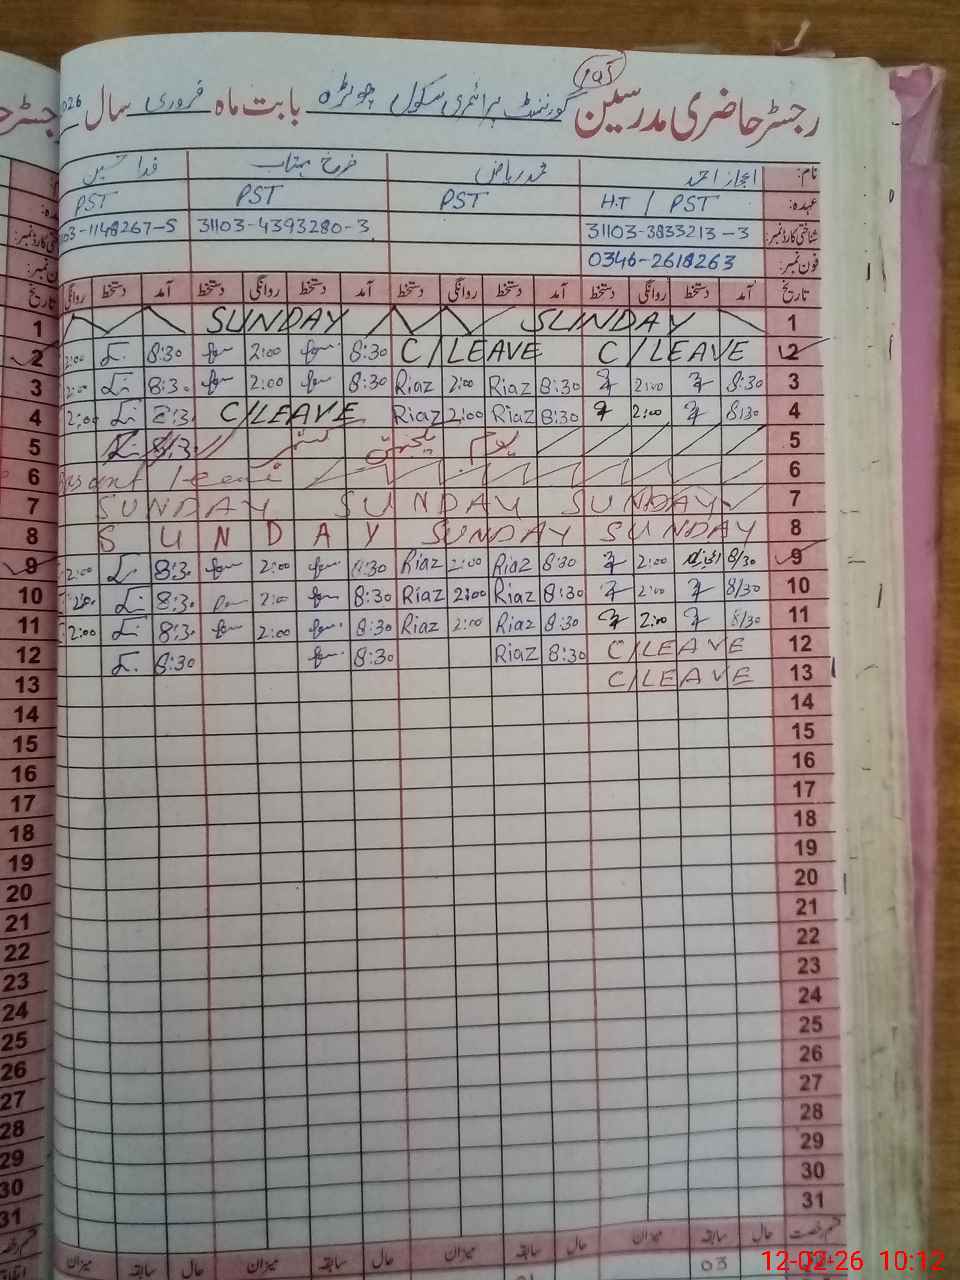 105
رجسٹر حاضری مدرسین گورنمنٹ پرائمری سکول چوٹڑہ بابت ماہ فروری سال 026
نام: اعجاز احمد محمد ریاض فرخ مہتاب فدا حسین
عہدہ: H.T / PST PST PST PST
شناختی کارڈ نمبر: 31103-3833213-3 31103-4393280-3 103-1148267-5
فون نمبر: 0346-2618263
تاریخ آمد دستخط روانگی دستخط آمد دستخط روانگی دستخط آمد دستخط روانگی دستخط آمد دستخط روانگی
1 SUNDAY SUNDAY 1
2 2:00 8:30 2:00 8:30 C/LEAVE C/LEAVE 2
3 2:00 8:30 2:00 8:30 Riaz 2:00 Riaz 8:30 2:00 8:30 3
4 2:00 8:30 C/LEAVE Riaz 2:00 Riaz 8:30 2:00 8/30 4
5 8:30 یوم یکجہتی کشمیر 5
6 6
7 SUNDAY SUNDAY SUNDAY 7
8 SUNDAY SUNDAY SUNDAY 8
9 2:00 8:30 2:00 8:30 Riaz 2:00 Riaz 8:30 2:00 8/30 9
10 8:30 2:00 8:30 Riaz 2:00 Riaz 8:30 2:00 8/30 10
11 2:00 8:30 2:00 8:30 Riaz 2:00 Riaz 8:30 2:00 8/30 11
12 8:30 8:30 Riaz 8:30 C/LEAVE 12
13 C/LEAVE 13
14 14
15 15
16 16
17 17
18 18
19 19
20 20
21 21
22 22
23 23
24 24
25 25
26 26
27 27
28 28
29 29
30 30
31 31
حال سابقہ میزان حال سابقہ میزان حال سابقہ میزان حال سابقہ میزان
03
12-02-26 10:12